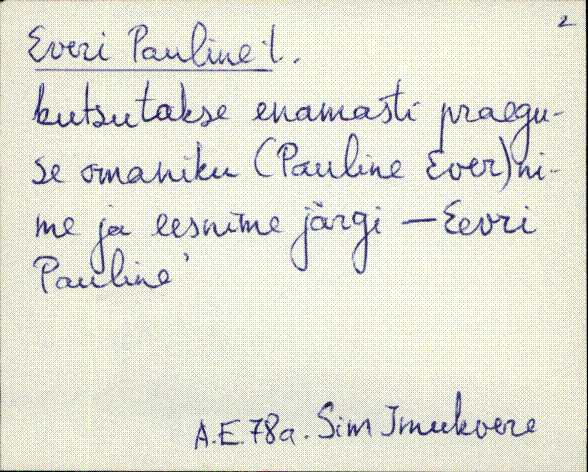 2
Everi Pauline t.
kutsutakse enamasti praegu-
se omaniku (Pauline Ever) ni-
me ja eesnime järgi – Eevri
Pauline'
A.E. 78a. Sim Imukvere